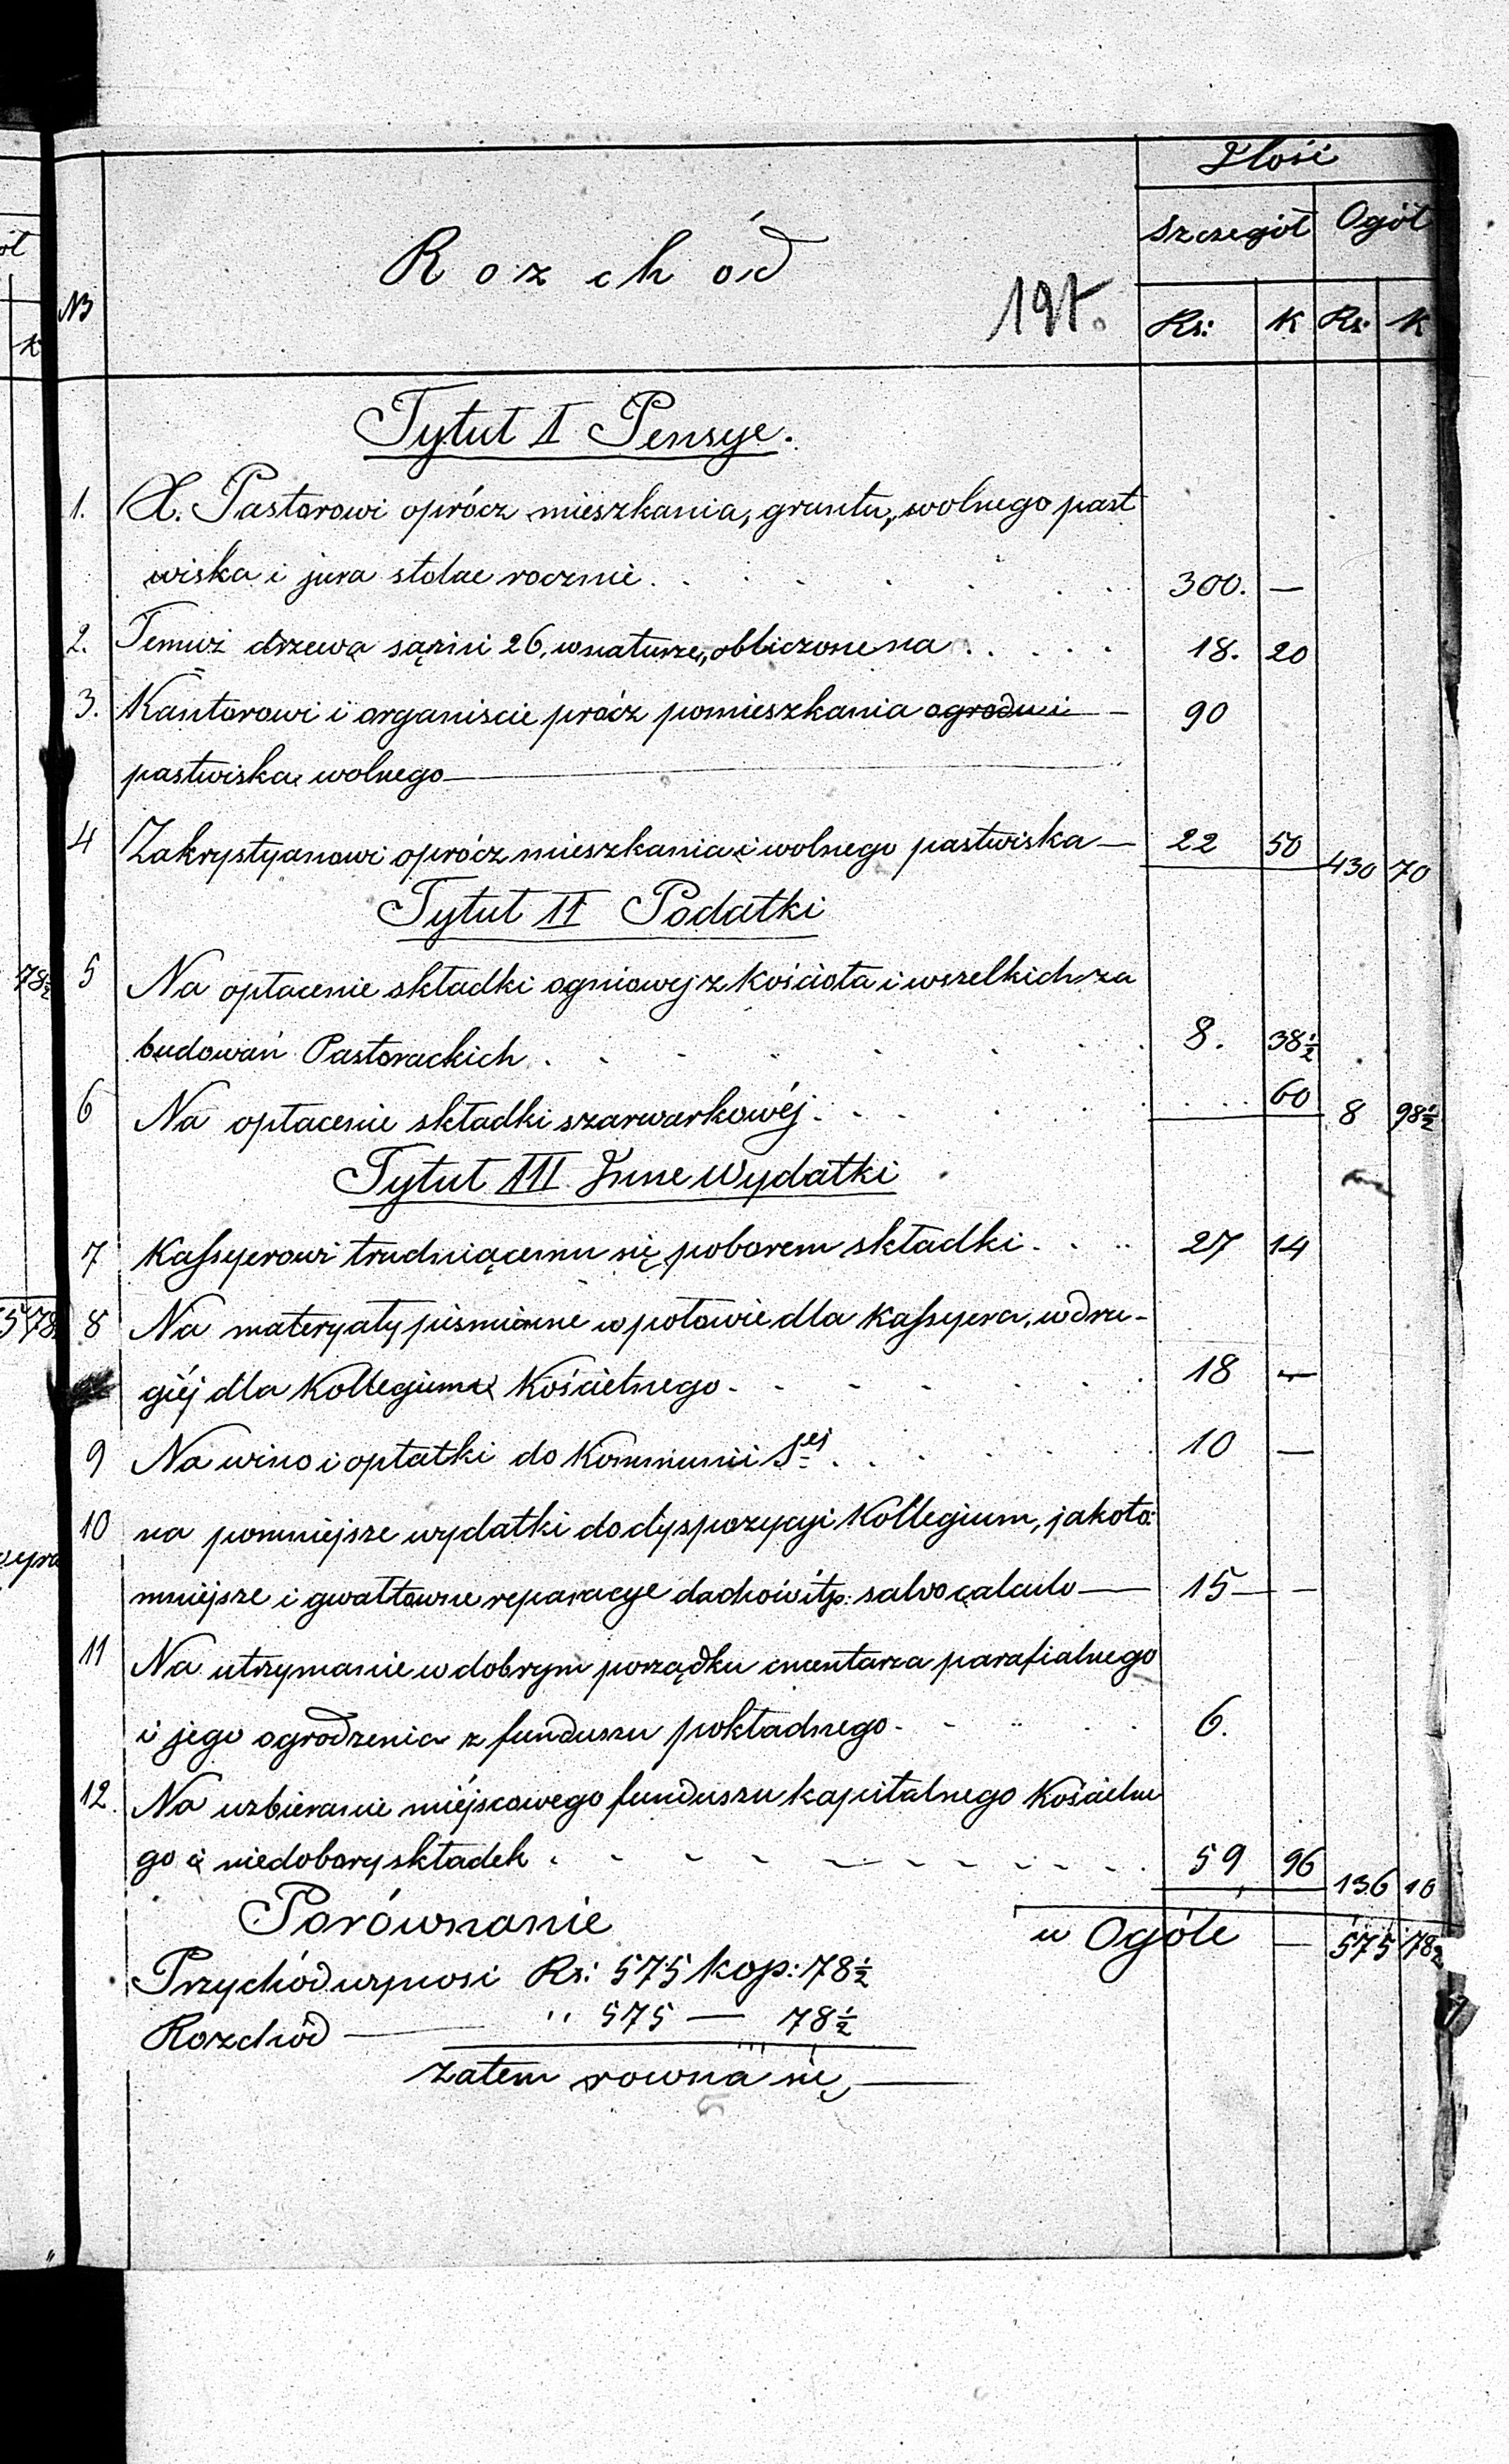 Ilość
Szczegół Ogół
Rozchód
191.
No Rs: K Rs: K
Tytuł I Pensye.
1. X. Pastorowi oprócz mieszkania, gruntu, wolnego past
wiska i jura stolae rocznie . . . . . . 300. —
2. Temuż drzewa sążni 26, w naturze, obliczone na . . . . . 18. 20
3. Kantorowi i organiscie prócz pomieszkania ogrodu i — 90
pastwiska wolnego —
4 Zakrystyanowi oprócz mieszkania i wolnego pastwiska — 22 50 430 70
Tytuł II Podatki
5 Na opłacenie składki ogniowej z kościoła i wszelkich za
budowań Pastorackich . . . . . . 8. 38½
6 Na opłacenie składki szarwarkowéj . . . . . . 60 8 98½
Tytuł III Inne Wydatki
7 Kassyerowi trudniącemu się poborem składki . . . . 27 14
8 Na materyały piśmienne w połowie dla Kassyera, w dru-
giéj dla Kollegium Kościelnego . . . . . . 18 —
9 Na wino i opłatki do Kommunii Sej . . . . . 10 —
10 na pomniejsze wydatki do dyspozycyi Kollegium, jakoto:
mniejsze i gwałtowne reparacye dachów itp: salvo calculo — 15 — —
11 Na utrzymanie w dobrym porządku cmentarza parafialnego
i jego ogrodzenia z funduszu pokładnego . . . . . 6.
12. Na uzbieranie miéjscowego funduszu kapitalnego Kościelne
go i niedobory składek . . . . . . . . . 59 96 136 10
Porównanie
w Ogóle — 575 78½
Przychód wynosi Rs: 575 kop: 78½
Rozchód — " 575 — 78½
Zatem rowna się —
78½